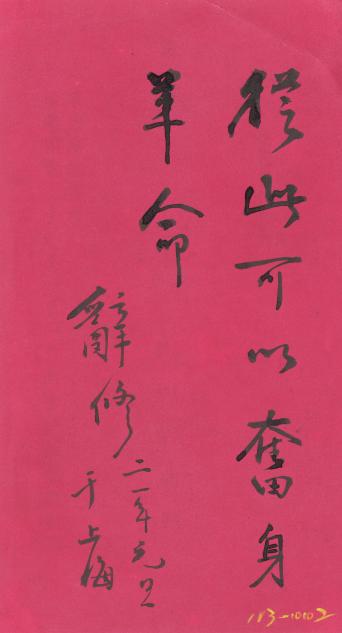 從此可以奮身
革命
辭修
二一年元旦
于上海
113-10102